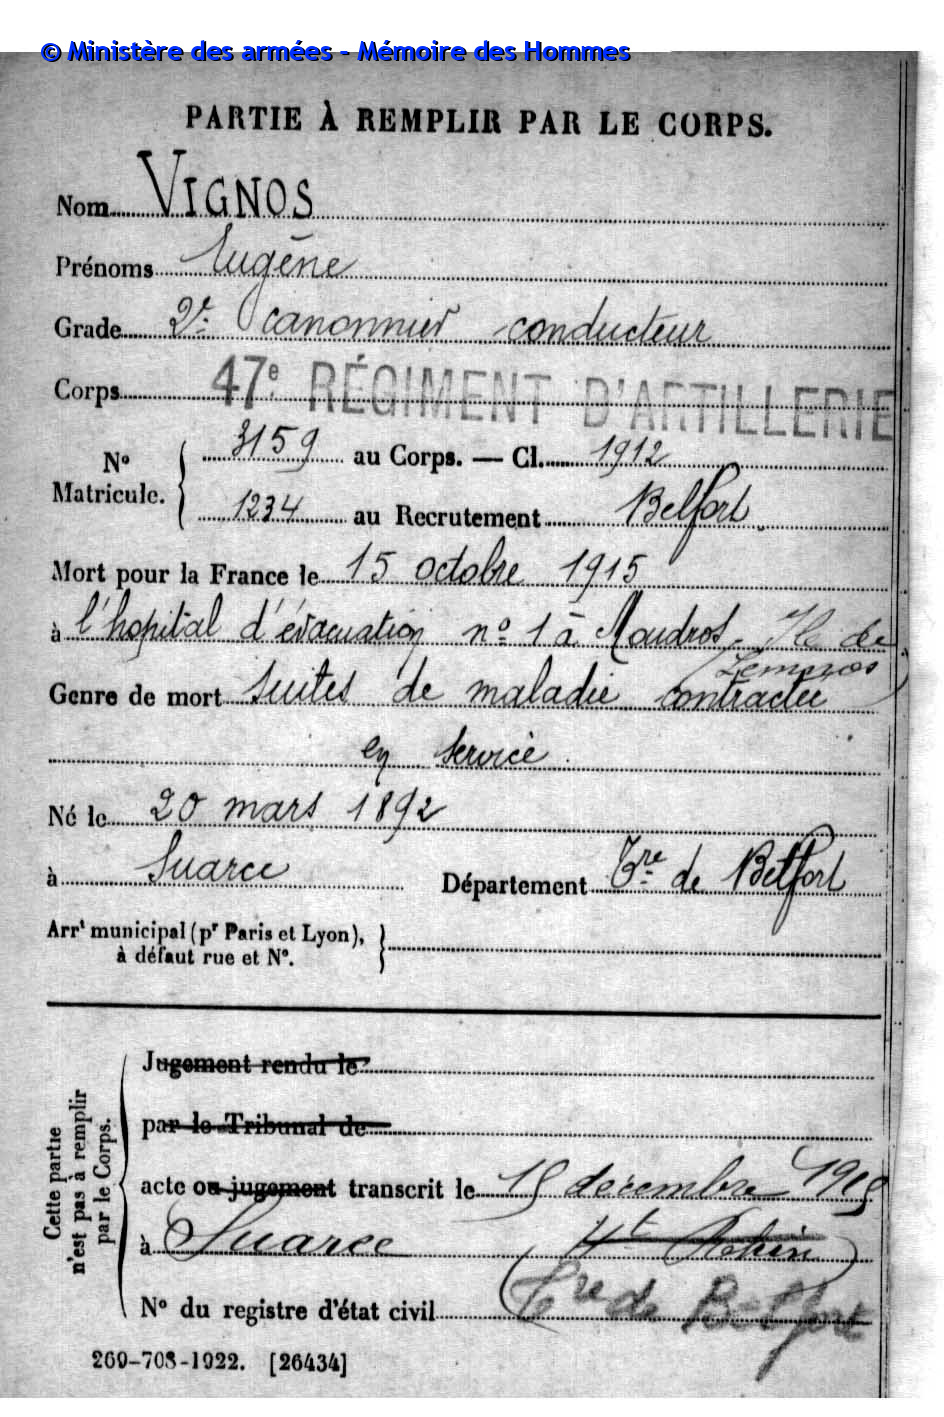 © Ministère des armées - Mémoire des Hommes
PARTIE À REMPLIR PAR LE CORPS.
Nom VIGNOS
Prénoms Eugène
Grade 2e canonnier conducteur
Corps 47e RÉGIMENT D'ARTILLERIE
No Matricule. 3159 au Corps. — Cl. 1912
1234 au Recrutement Belfort
Mort pour la France le 15 octobre 1915
à l'hopital d'évacuation no 1 à Moudros, Ile de
Lemnos
Genre de mort Suites de maladie contractée
en service.
Né le 20 mars 1892
à Suarce Département Tre de Belfort
Arrt municipal (pr Paris et Lyon),
à défaut rue et No.
Cette partie n'est pas à remplir par le Corps.
Jugement rendu le
par le Tribunal de
acte ou jugement transcrit le 15 décembre 1915
à Suarce Ht Rhin
(Tre de Belfort)
No du registre d'état civil
269-708-1922. [26434]